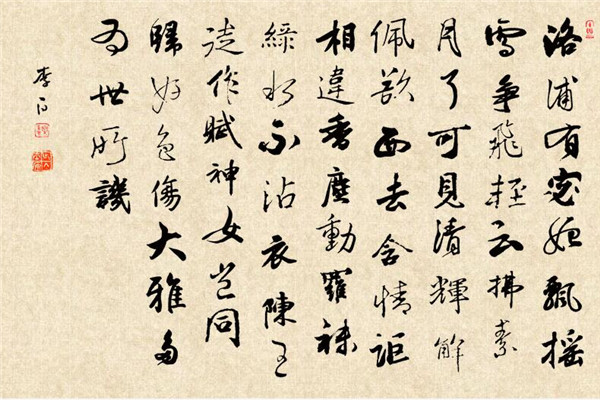 洛浦有宓妃飄摇
雪爭飛輕云拂素
月了可見清輝解
佩欲西去含情詎
相違香塵動羅袜
綠水不沾衣陳王
徒作賦神女豈同
歸好色傷大雅多
为世所譏
李